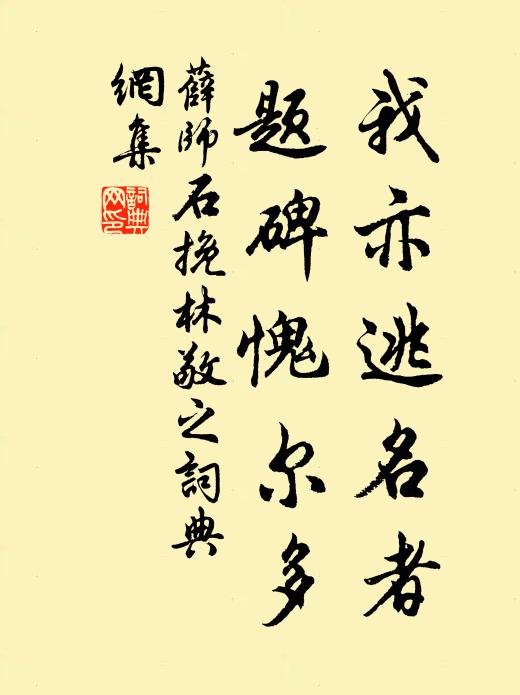 我亦逃名者
题碑愧尔多
薛师石挽林敬之詞典
網集
詞典網印